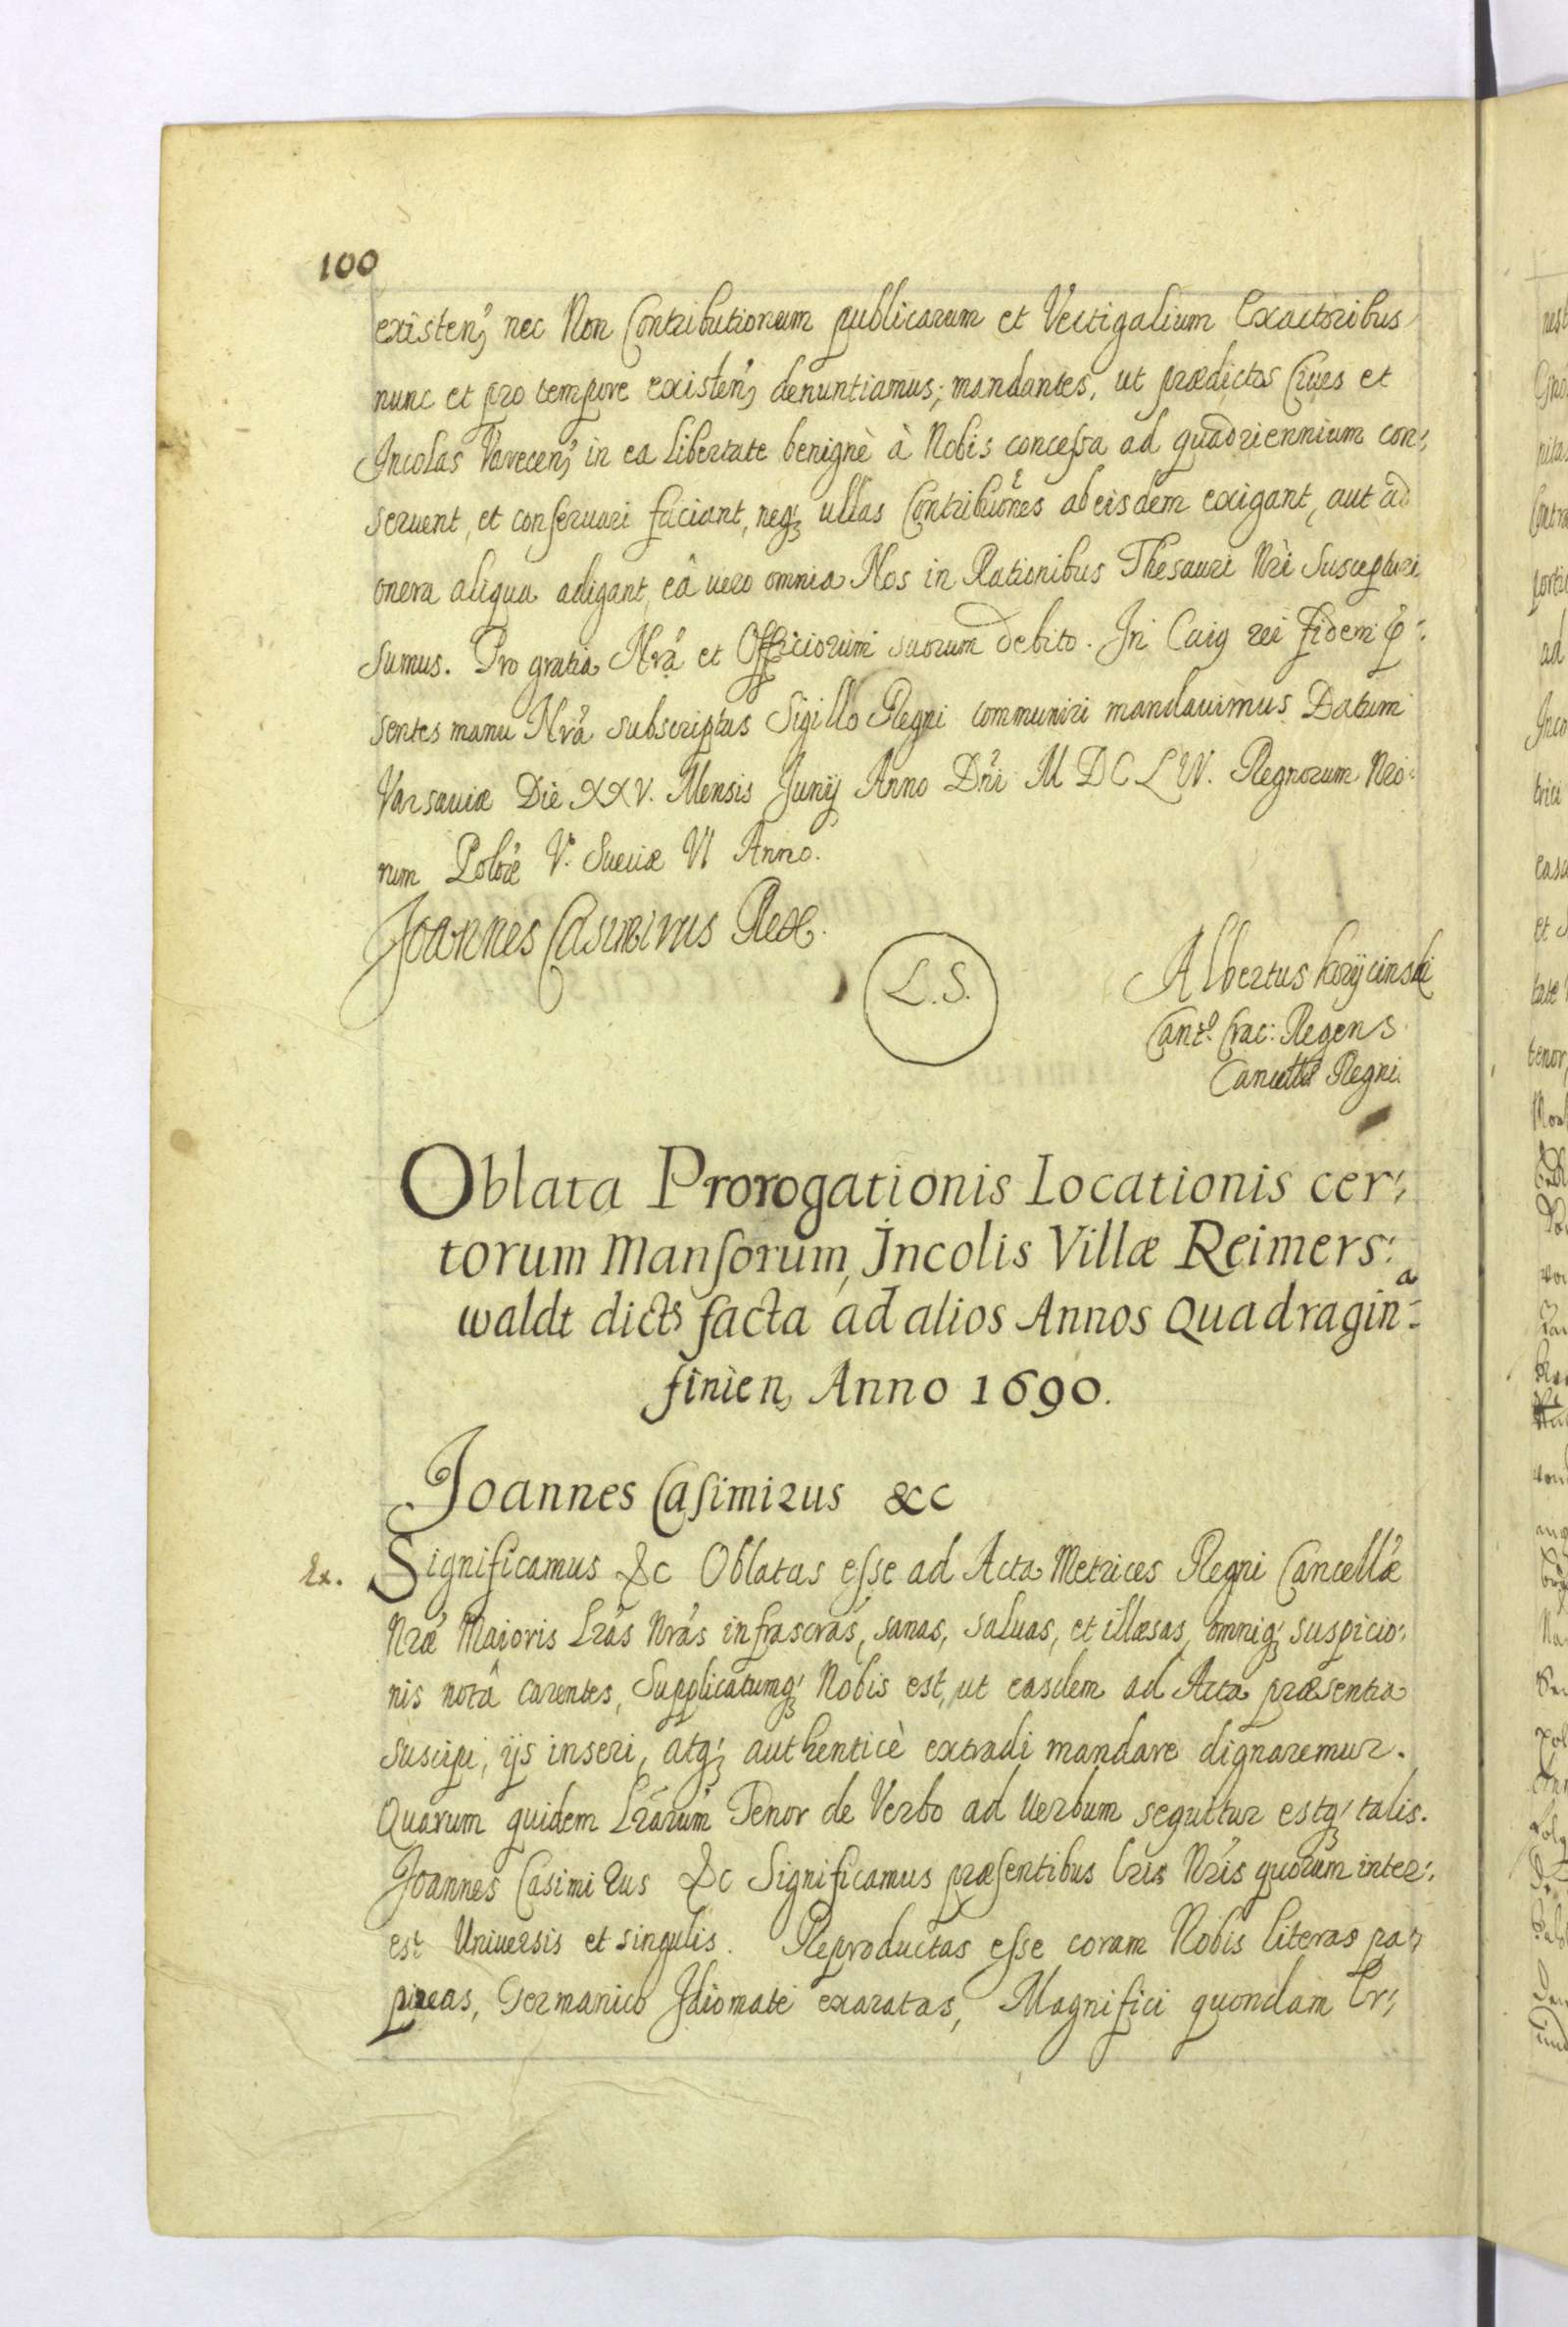 100
existen, nec Non Contributionum publicarum et Vectigalium Exactoribus
nunc et pro tempore existen, denuntiamus; mandantes, ut prædictos Ciues et
Incolas Varecen, in ea libertate benignè à Nobis concessa ad quadriennium con,
seruent, et conseruari faciant, neq; ullas Contribuões ab eisdem exigant, aut ad
onera aliqua adigant, eâ uero omnia Nos in Rationibus Thesauri Nri Suscepturi
sumus. Pro gratia Nrâ et Officiorum suorum debito. In Cuiq rei fidem p:
sentes manu Nrâ subscriptas Sigillo Regni communiri mandauimus Datum
Varsauiæ Die XXV. Mensis Junij Anno Dni M DC LIV. Regnorum Nro:
rum Polõæ V. Sueciæ VI Anno.
Joannes Casimirus Rex.
L.S.
Albertus Koryciński
Cant. Crac: Regens
Cancellæ Regni.
Oblata Prorogationis Locationis cer,
torum Mansorum, Jncolis Villæ Reimers:
waldt dicts facta ad alios Annos Quadragin:ᵃ
finien, Anno 1690.
Joannes Casimirus &c
Ex. Significamus &c Oblatas esse ad Acta Metrices Regni Cancellæ
Nræ Maioris Lras Nras infrascras, sanas, saluas, et illæsas, omniq; suspicio,
nis notâ carentes, Supplicatumq; Nobis est, ut easdem ad Acta præsentia
suscipi, ijs inseri, atq; authenticè extradi mandare dignaremur.
Quarum quidem Lrarum Tenor de Verbo ad Verbum sequitur estq; talis.
Joannes Casimirus &c Significamus præsentibus Lris Nris quorum inter,
est Uniuersis et singulis. Reproductas esse coram Nobis literas pa,
pireas, Germanico Jdiomate exaratas, Magnifici quondam Er,